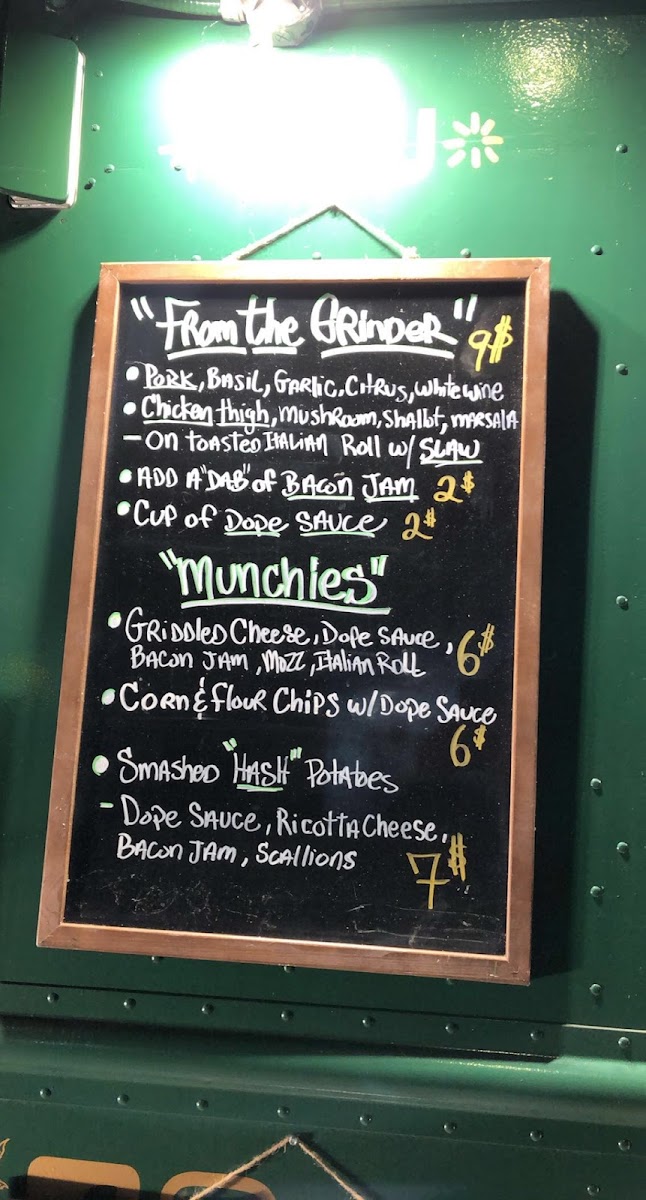 "From the Grinder" 9$
• Pork, Basil, Garlic, Citrus, white wine
• Chicken thigh, mushroom, shallot, marsala
- On toasted Italian Roll w/ Slaw
• Add a "Dab" of Bacon Jam 2$
• Cup of Dope Sauce 2$
"Munchies"
• Griddled Cheese, Dope Sauce,
Bacon Jam, Mozz, Italian Roll 6$
• Corn & Flour Chips w/ Dope Sauce
6$
• Smashed "Hash" Potatoes
- Dope Sauce, Ricotta Cheese,
Bacon Jam, Scallions
7$